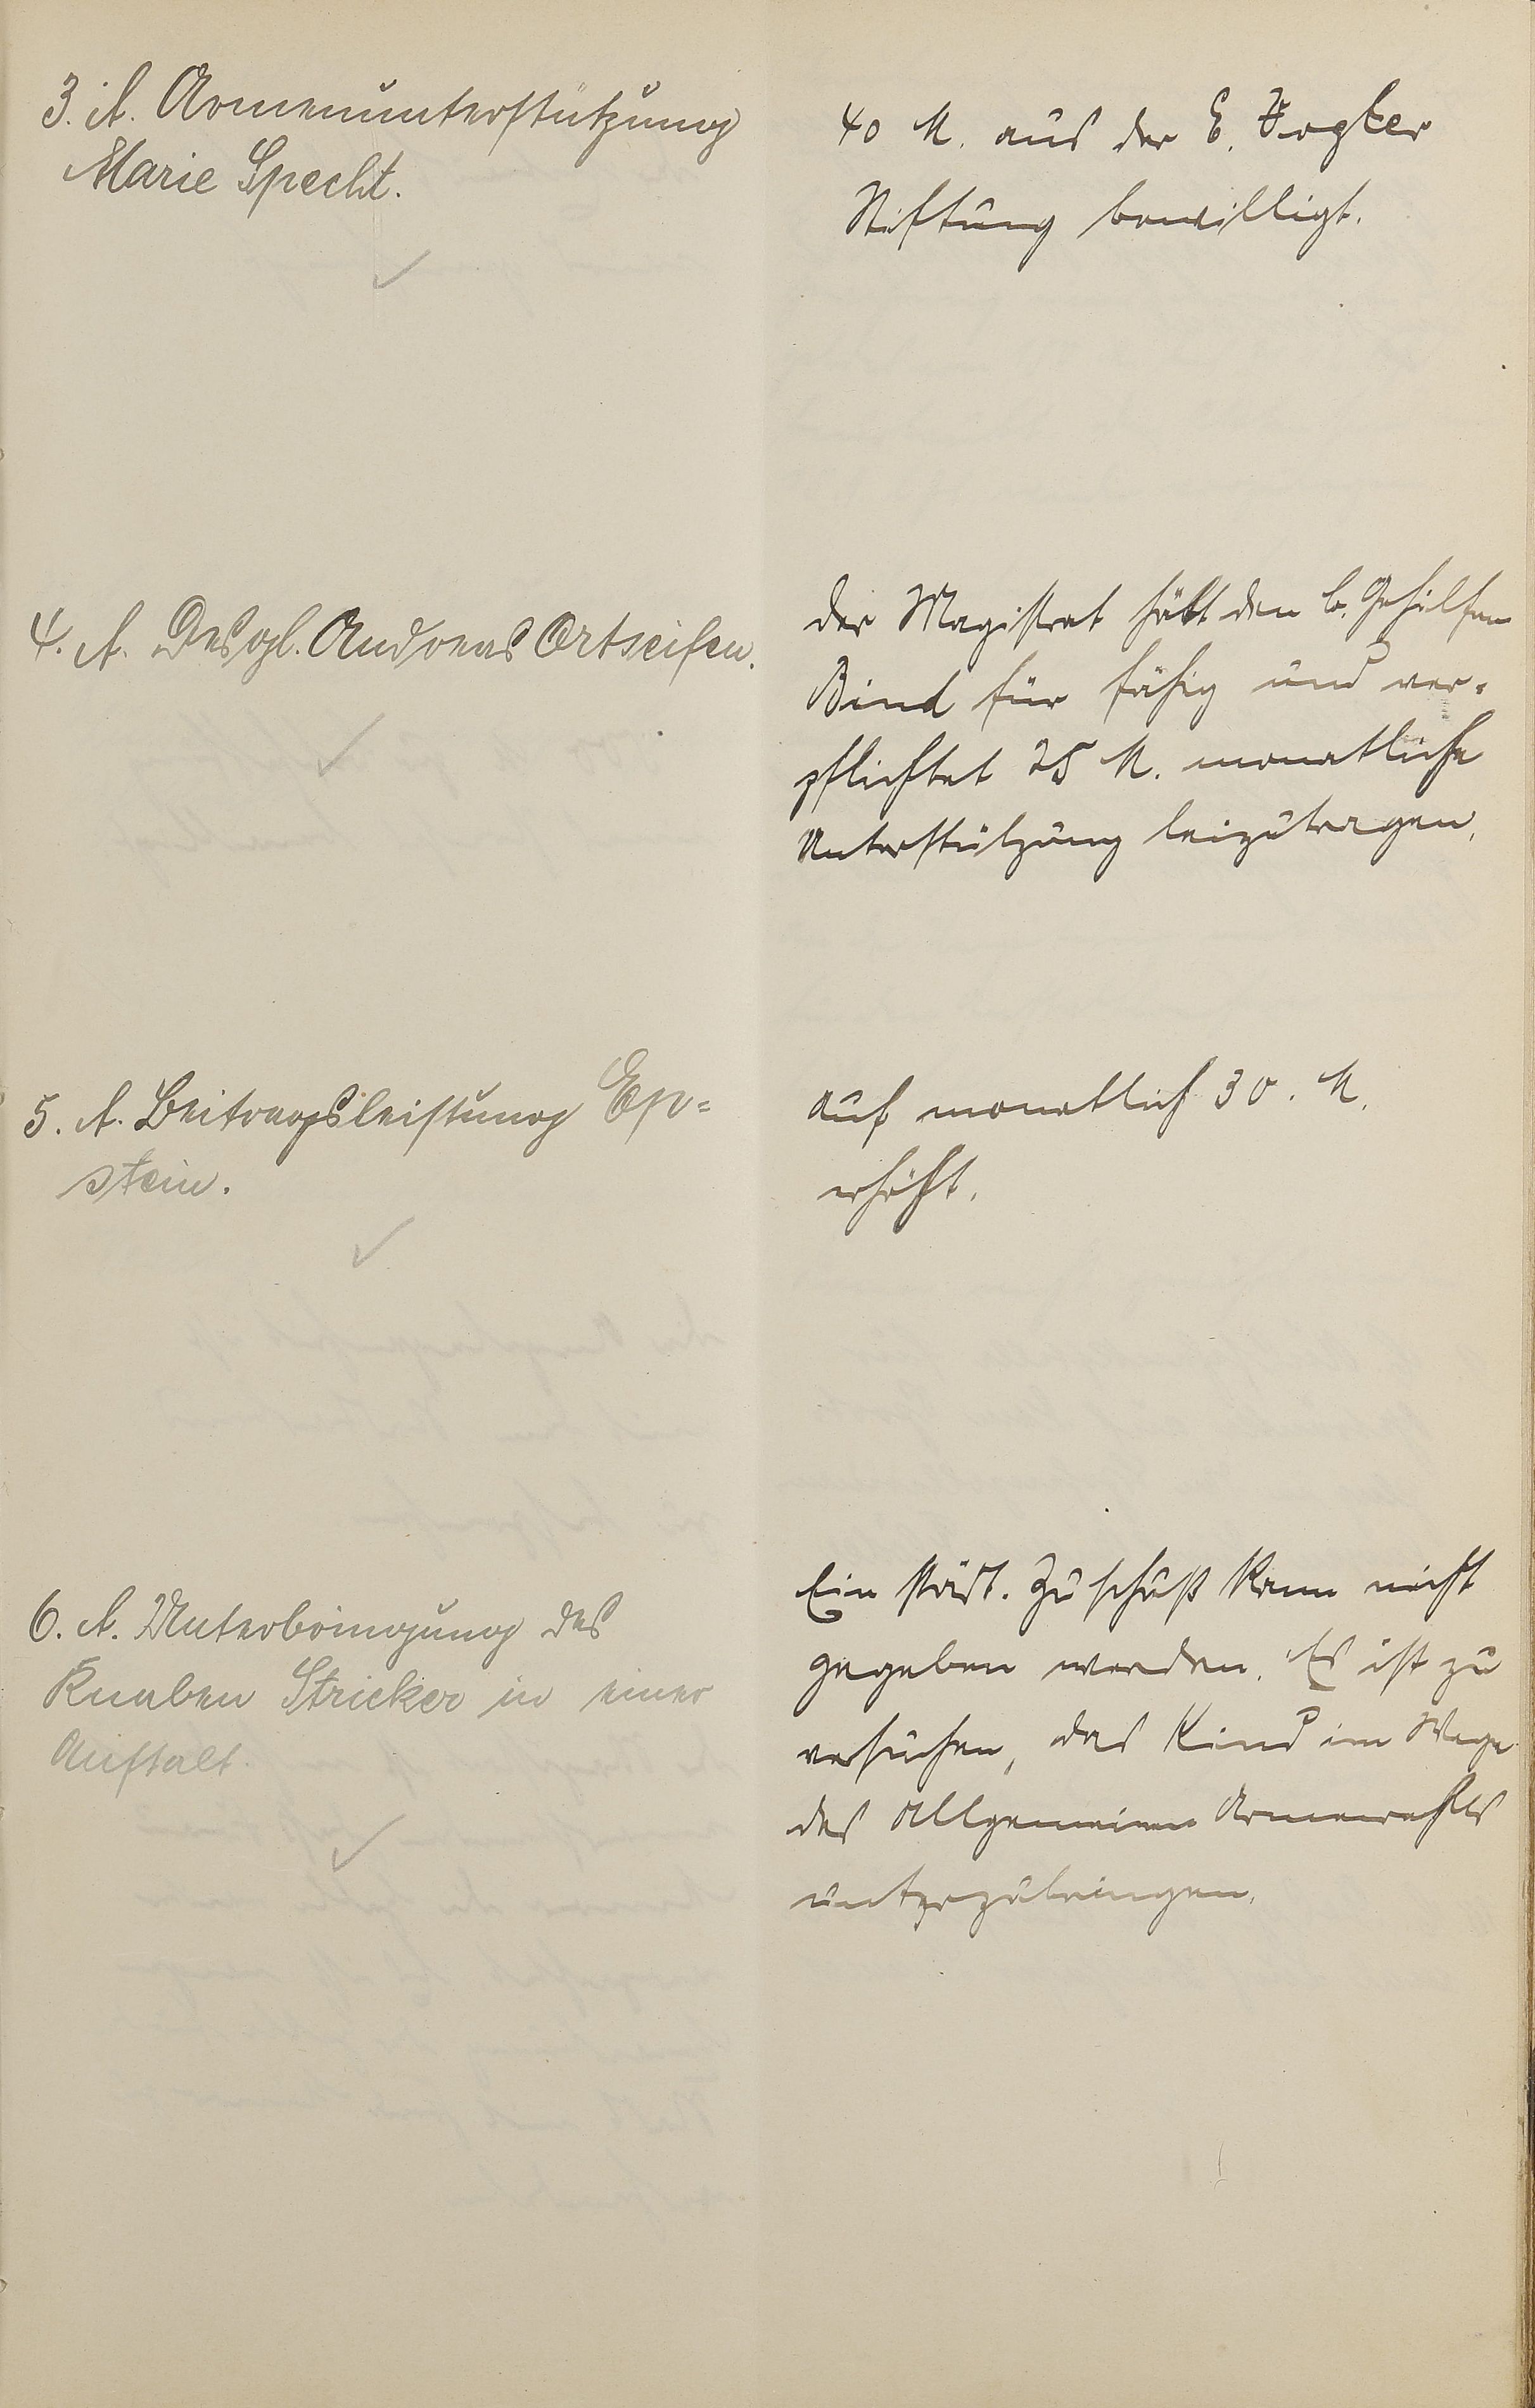 3. A. Armenunterstützung
Marie Specht.
40 M. aus der E.
Stiftung bewilligt.
4. A. Desgl. Andreas Ortseifen.
der Magistrat hält den b. Gehilfen
für fähig und ver-
pflichtet 25 M. monatliche
Unterstützung beizutragen.
5. A. Beitragsleistung Ep=
stein.
auf monatlich 30. M.
erhöht.
6. A. Unterbringung des
Knaben Stricker in einer
Anstalt.
Ein städt. Zuschuß kann nicht
gegeben werden. Es ist zu
versuchen, das Kind im Wege
des allgemeinen Armenrechts
unterzubringen.